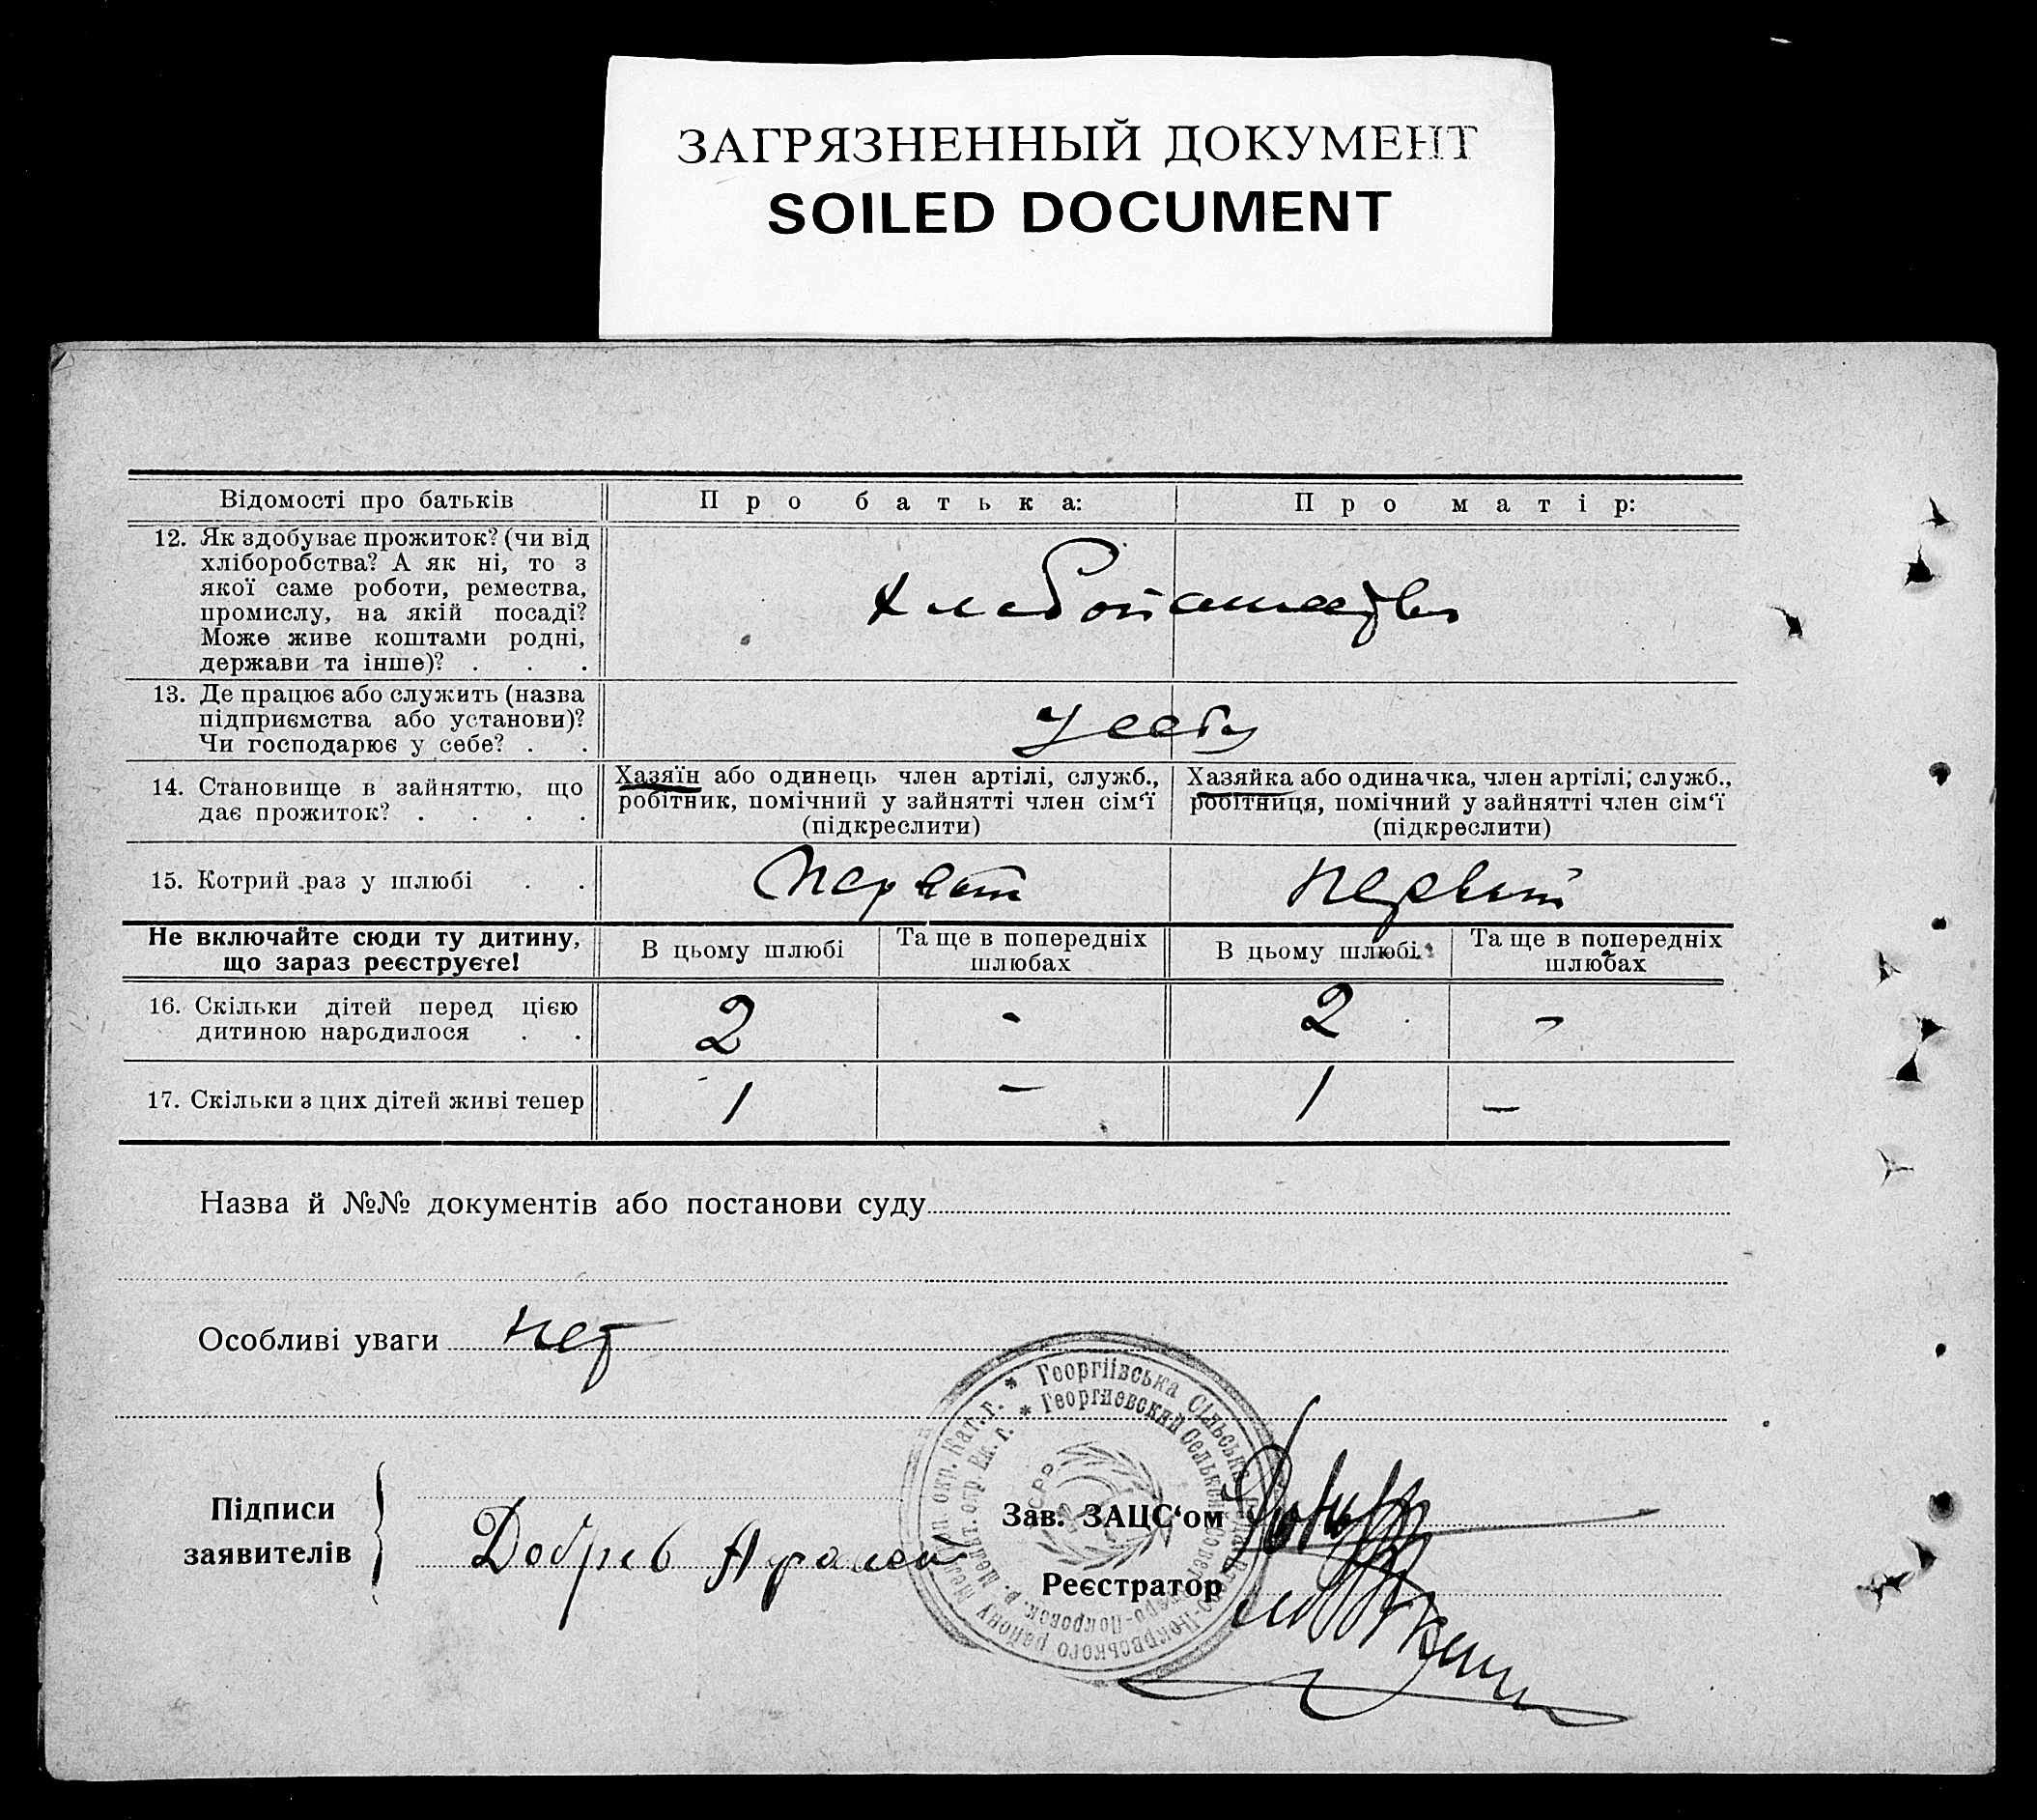 ЗАГРЯЗНЕННЫЙ ДОКУМЕНТ
SOILED DOCUMENT
Відомості про батьків
Про батька:
Про матір:
12. Як здобуває прожиток? (чи від
хліборобства? А як ні, то з
якої саме роботи, ремества,
промислу, на якій посаді?
Може живе коштами родні,
держави та інше)? . . .
Хлебопашество
13. Де працює або служить (назва
підприємства або установи)?
Чи господарює у себе? . .
У себя
14. Становище в зайняттю, що
дає прожиток? . . . .
Хазяїн або одинець член артілі, служб.,
робітник, помічний у зайнятті член сім'ї
(підкреслити)
Хазяйка або одиначка, член артілі; служб.,
робітниця, помічний у зайнятті член сім'ї
(підкреслити)
15. Котрий раз у шлюбі . .
Первый
первый
Не включайте сюди ту дитину,
що зараз реєструєте!
В цьому шлюбі
Та ще в попередніх
шлюбах
В цьому шлюбі
Та ще в попередніх
шлюбах
16. Скільки дітей перед цією
дитиною народилося . .
2
-
2
-
17. Скільки з цих дітей живі тепер
1
-
1
-
Назва й №№ документів або постанови суду
Особливі уваги нет
* Георгіївська Сільська
* Георгиевский Сельский
Підписи
заявителів
Добрев
Зав. ЗАЦС'ом
Реєстратор